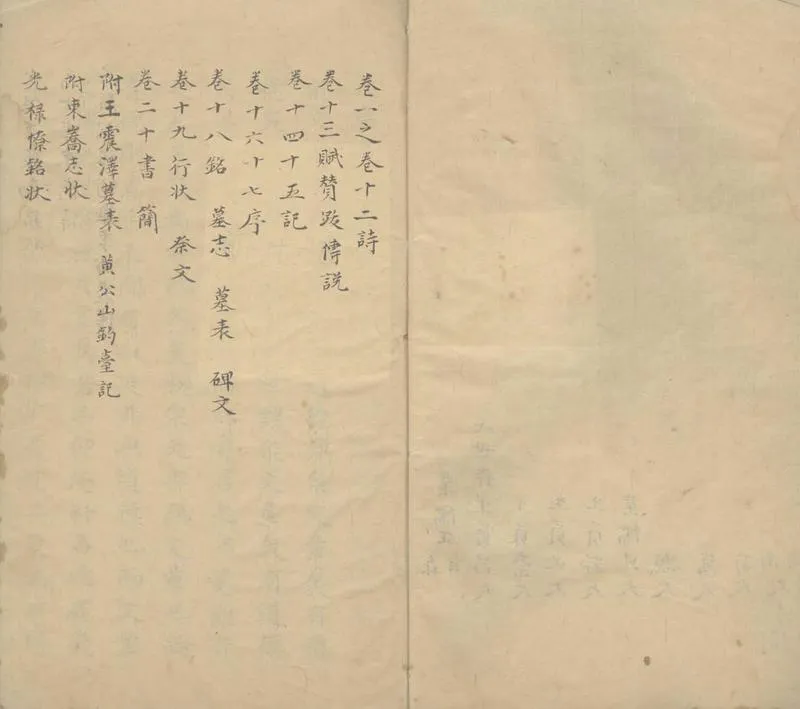 卷一之卷十二詩
卷十三賦贊跋傳説
卷十四十五記
卷十六十七序
卷十八銘 墓志 墓表 碑文
卷十九行狀 祭文
卷二十書 簡
附王震澤墓表 黃公山釣臺記
附東喬志狀
光祿憭銘狀